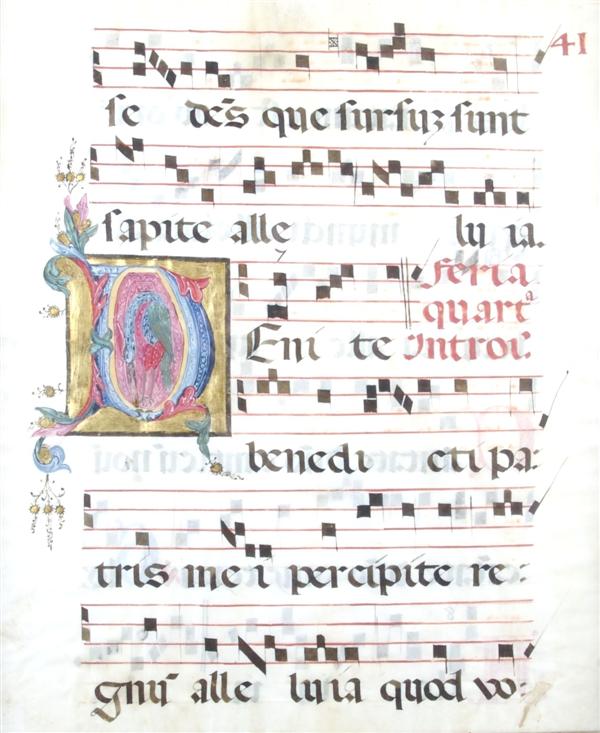 41
se dēs que sursuz sunt
sapite alle lu ia.
feria
quarta
VEni te introi.
benedi cti pa:
tris me i percipite re:
gnu alle lu ia quod vo: